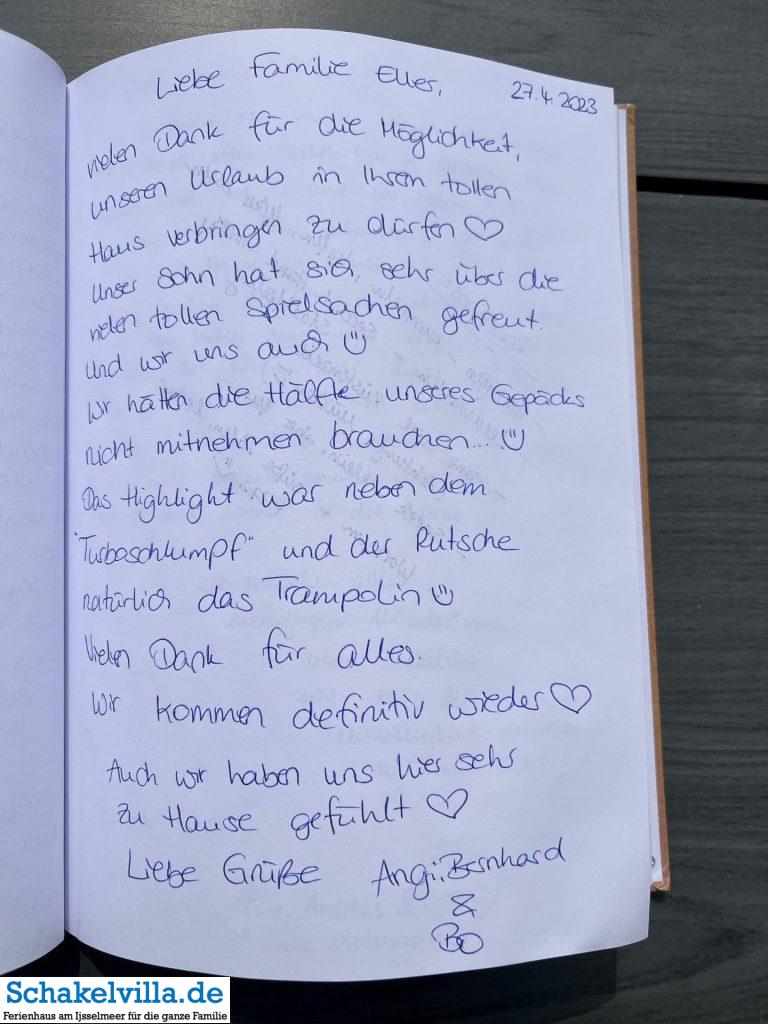 Liebe Familie Elles,
27.4.2023
vielen Dank für die Möglichkeit,
unseren Urlaub in Ihrem tollen
Haus verbringen zu dürfen ♡
Unser Sohn hat sich sehr über die
vielen tollen Spielsachen gefreut.
Und wir uns auch ☺
Wir hätten die Hälfte unseres Gepäcks
nicht mitnehmen brauchen... ☺
Das Highlight war neben dem
"Turboschlumpf" und der Rutsche
natürlich das Trampolin ☺
Vielen Dank für alles.
Wir kommen definitiv wieder ♡
Auch wir haben uns hier sehr
zu Hause gefühlt ♡
Liebe Grüße Angi, Bernhard
&
Bo
Schakelvilla.de
Ferienhaus am Ijsselmeer für die ganze Familie